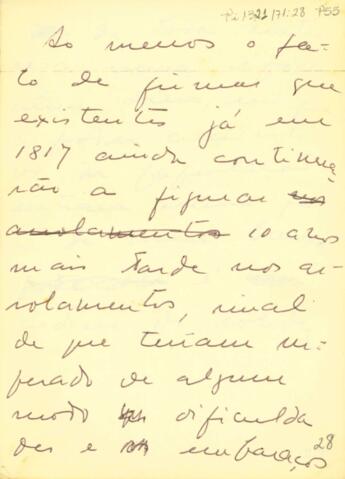 Pi 1321 / 71:28 P55
Ao menos o fa-
to de firmas que
existentes já em
1817 ainda continua-
rão a figurar nos
arrolamentos 10 anos
mais tarde nos ar-
rolamentos, sinal
de que teriam su-
perado de algum
modo dificulda
des e embaraços
28